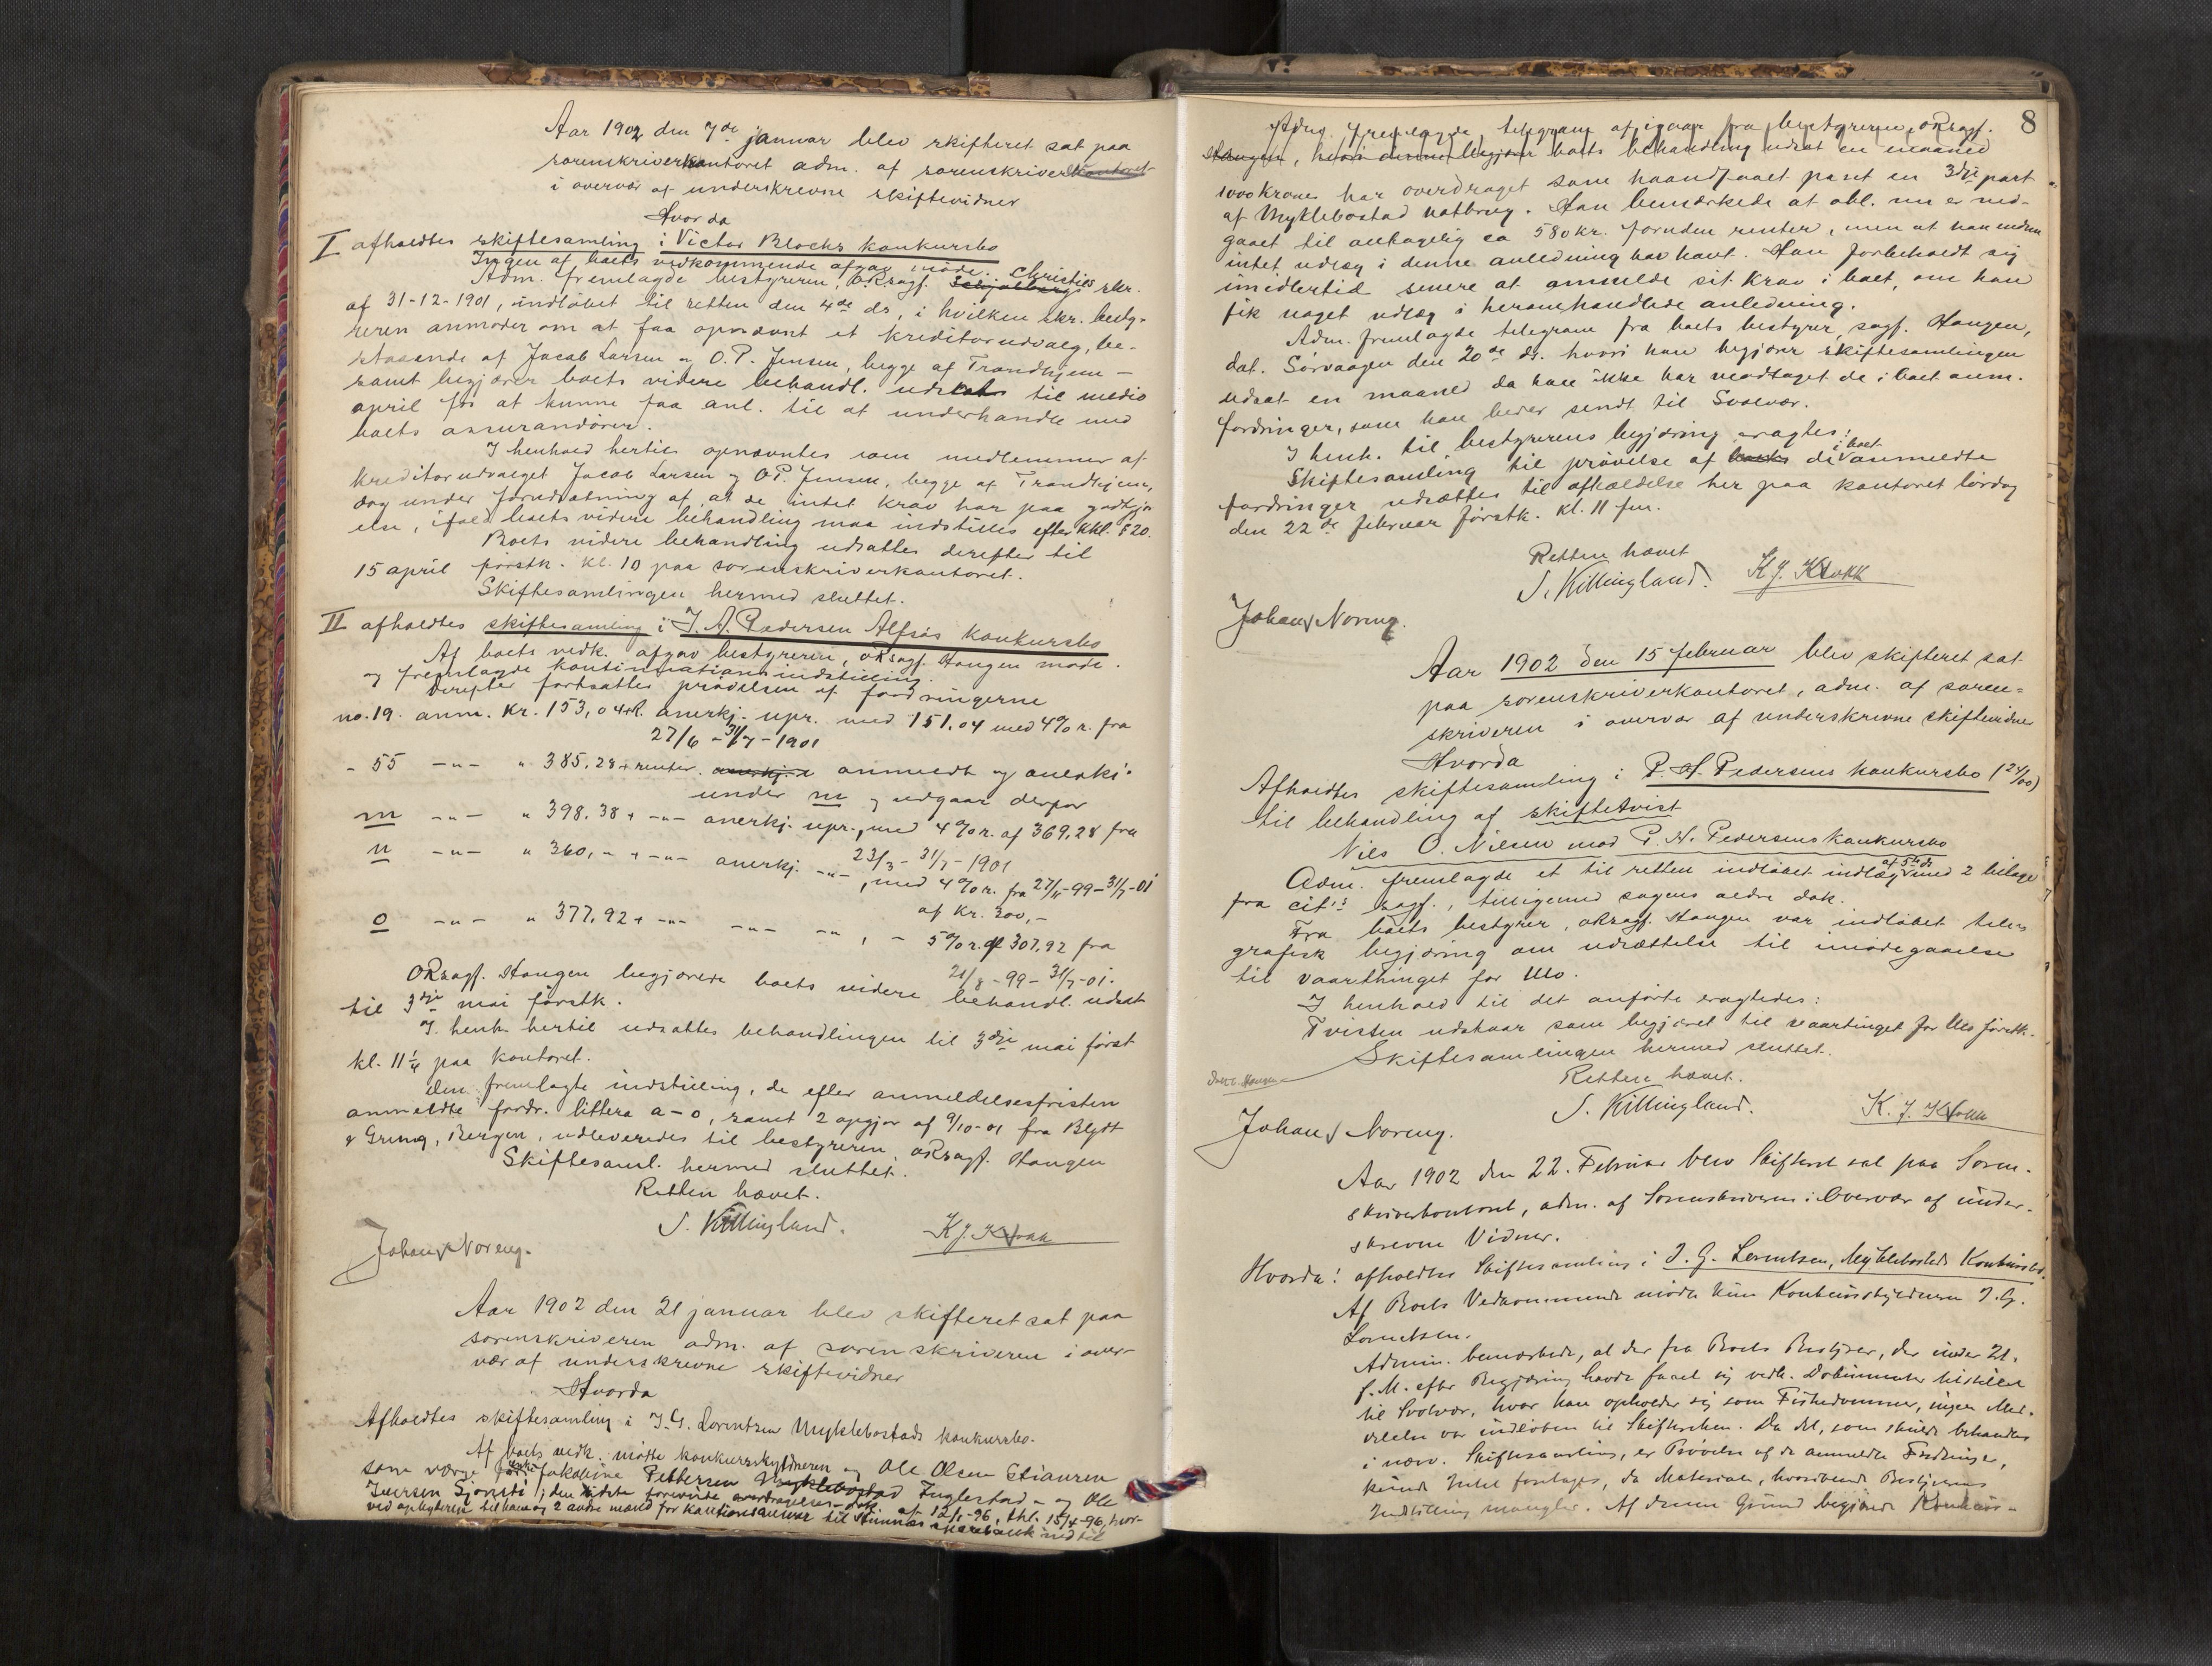 Aar 1902 den 7de januar blev skifteret sat paa
sorenskriverkontoret adm. af sorenskriver
i overvær af underskrevne skiftevidner
Hvorda
I afholdtes skiftesamling i Victor Blochs konkursbo
Ingen af boets vedkommende afgav møde.
Adm. fremlagde bestyreren, ORsagf. Christies skr.
af 31-12-1901, indløbet til retten den 4de ds, i hvilken skr. besty-
reren anmoder om at faa opnævnt et kreditorudvalg, be-
staaende af Jacob Larsen og O.P. Jensen, begge af Trondhjem -
samt begjærer boets videre behandl. udsat til medio
april for at kunne faa anl. til at underhandle med
boets assurandører.
I henhold hertil opnævntes som medlemmer af
kreditorudvalget Jacob Larsen og O.P. Jensen, begge af Trondhjem,
dog under forudsætning af, at de intet krav har paa godtgjø
else, ifald boets videre behandling maa indstilles efter kkl. § 20.
Boets videre behandling udsattes derefter til
15 april førstk. kl. 10 paa sorenskriverkontoret.
Skiftesamlingen hermed sluttet.
II afholdtes skiftesamling i J. A. Pedersen Alfsøs konkursbo
Af boets vedk. afgav bestyreren, ORsagf. Hangen møde.
og fremlagde kontinuationsindstilling.
Derefter fortsattes prøvelsen af fordringerne
no. 19. anm. Kr. 153,04+r. anerkj. upr. med 151.04 med 4% r. fra
27/6 - 31/7 - 1901
- 55 -"- " 385.28+renter. anmeldt og anerkj.
under m og udgaar derfor
m -"- " 398.38 + -"- anerkj. upr., med 4% r. af 369.28 fra
23/3 - 31/7 - 1901
n -"- " 360,- + -"- anerkj. -"-, med 4% r. fra 27/11-99-31/7-01
af kr. 300,-
o -"- " 377.92 + -"- -"- -"-, - 5% r. af 307.92 fra
21/8 - 99 - 31/7-01.
ORsagf. Hangen begjærede boets videre behandl. udsat
til 3dje mai førstk.
I henh. hertil udsattes behandlingen til 3dje mai først
kl. 11 1/4 paa kontoret.
Den fremlagte indstilling, de efter anmeldelsesfristen
anmeldte fordr. littera a-o, samt 2 opgjør af 9/10-01 fra Blytt
& Grung, Bergen, udleveredes til bestyreren, ORsagf. Hangen
Skiftesaml. hermed sluttet.
Retten hævet.
S. Killingland.
K J. Krokk
Johan Noreng.
Aar 1902 den 21 januar blev skifteret sat paa
sorenskriveren adm. af sorenskriveren i over-
vær af underskrevne skiftevidner
Hvorda
Afholdtes skiftesamling i J. G. Lorentsen Myklebostads konkursbo.
Af boets vedk. mødte konkursskyldneren og Ole Olsen Stiansen
som værge for enke Jakobine Pettersen Myklebostad Fuglestad - og Ole
Iversen Sjonsti; den sidste foreviste overdragelses-dok. af 12/1-96, thl. 15/4-96, hvor-
ved opligteren til ham og 2 andre mænd for kautionsansvar til Stinnes sparebank indtil
8
Adm. fremlagde telegram af igaar fra bestyreren, ORsagf.
Hangen, hvori denne begjærer boets behandling udsat en maaned
1000 kroner har overdraget som haandfaaet pant en 3dje part
af Myklebostad notbrug. Han bemærkede at obl. nu er ned-
gaaet til antagelig ca 580 kr. foruden renter, men at han endnu
intet udlæg i denne anledning har havt. Han forbeholdt sig
imidlertid senere at anmelde sit krav i boet, om han
fik noget udlæg i heromhandlede anledning.
Adm. fremlagde telegram fra boets bestyrer, sagf. Hangen,
dat. Sørvaagen den 20de ds. hvori han begjærer skiftesamlingen
udsat en maaned da han ikke har modtaget de i boet anm.
fordringer, som han beder sendt til Svolvær.
I henh. til bestyrerens begjæring eragtes:
Skiftesamling til prøvelse af de i boet anmeldte
fordringer udsættes til afholdelse her paa kontoret lørdag
den 22de februar førstk. kl. 11 fm.
Retten hævet
S. Killingland. K J. Krokk
Johan Noreng.
Aar 1902 den 15 februar blev skifteret sat
paa sorenskriverkontoret, adm. af soren-
skriveren i overvær af underskrevne skiftevidner
Hvorda
Afholdtes skiftesamling i P. H. Pedersens konkursbo (24/00)
til behandling af skiftetvist
Nils O. Nilsen mod P. H. Pedersens konkursbo
Adm. fremlagde et til retten indløbet indlæg af 5te ds med 2 bilage
fra cit's sagf., tilligemed sagens ældre dok.
Fra boets bestyrer, ORsagf. Hangen var indløbet tele-
grafisk begjæring om udsættelse til imødegaaelse
til vaarthinget for Mo.
I henhold til det anførte eragtedes:
Tvisten udstaar som begjæret til vaartinget for Mo førstk.
Skiftesamlingen hermed sluttet.
Retten hævet.
S. Killingland. K. J. Krokk
Johan Noreng.
Aar 1902 den 22. Februar blev Skifteret sat paa Soren-
skriverkontoret, adm. af Sorenskriveren i Overvær af under-
skrevne Vidner.
Hvorda: afholdtes Skiftesamling i J. G. Lorentsen, Myklebostads Konkursbo.
Af Boets Vedkommende mødte kun Konkursskyldneren J. G.
Lorentsen.
Admin. bemærkede, at der fra Boets Bestyrer, der under 21.
f. M. efter Begjæring havde faaet sig vedk. Dokumenter tilstillet
til Svolvær, hvor han opholder sig som Fiskedommer, ingen Med-
delelse var indløben til Skifteretten. Da det, som skulde behandles
i nærv. Skiftesamling, er Prøvelse af de anmeldte Fordringer,
kunde Intet foretages, da Materialet, hvoriblandt Bestyrerens
Indstilling mangler. Af denne Grund begjærede Konkurs-